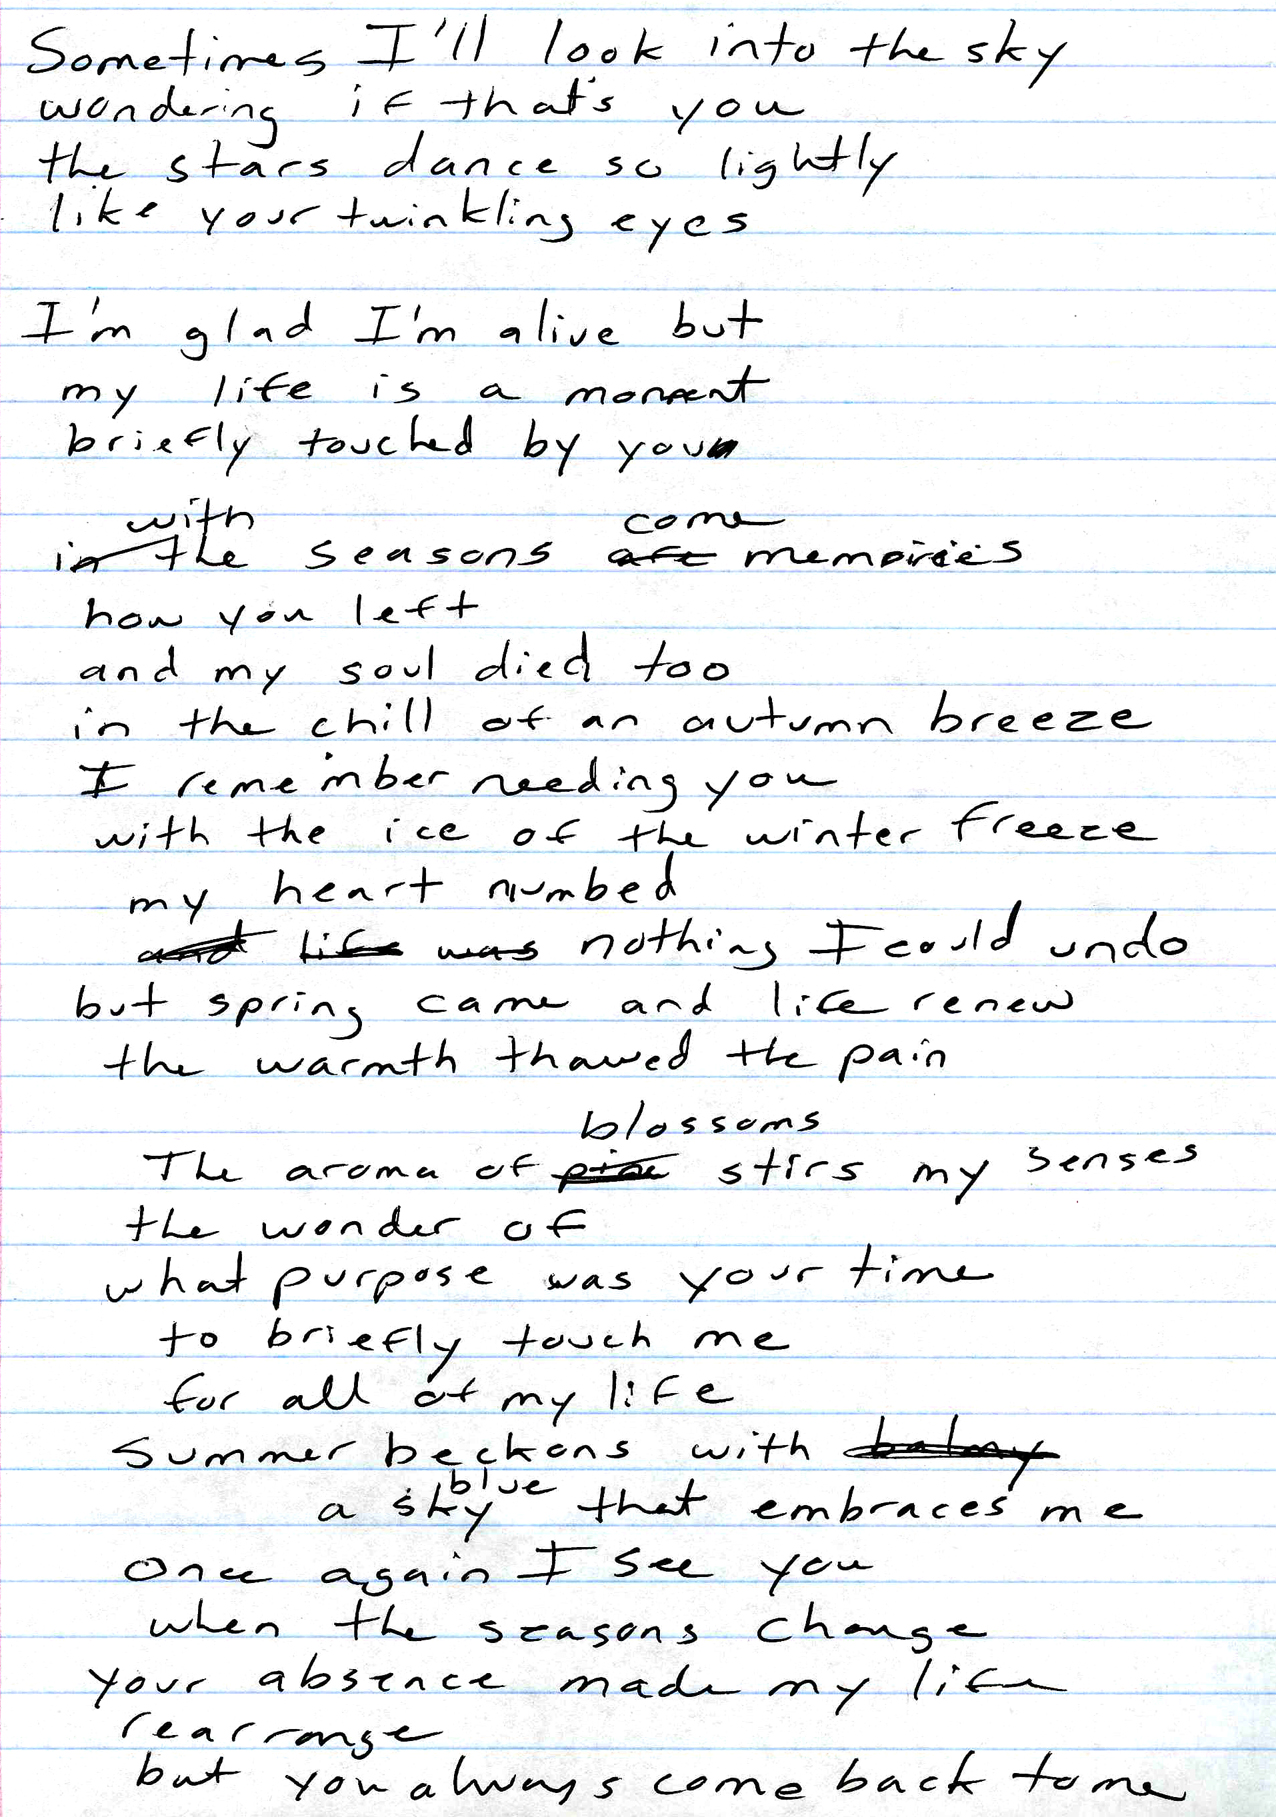 Sometimes I'll look into the sky
wondering if that's you
the stars dance so lightly
like your twinkling eyes
I'm glad I'm alive but
my life is a moment
briefly touched by you
with come
in the seasons are memories
how you left
and my soul died too
in the chill of an autumn breeze
I remember needing you
with the ice of the winter freeze
my heart numbed
and life was nothing I could undo
but spring came and life renew
the warmth thawed the pain
blossoms
The aroma of pine stirs my senses
the wonder of
what purpose was your time
to briefly touch me
for all of my life
Summer beckons with balmy
blue
a sky that embraces me
Once again I see you
when the seasons change
your absence made my life
rearrange
but you always come back to me